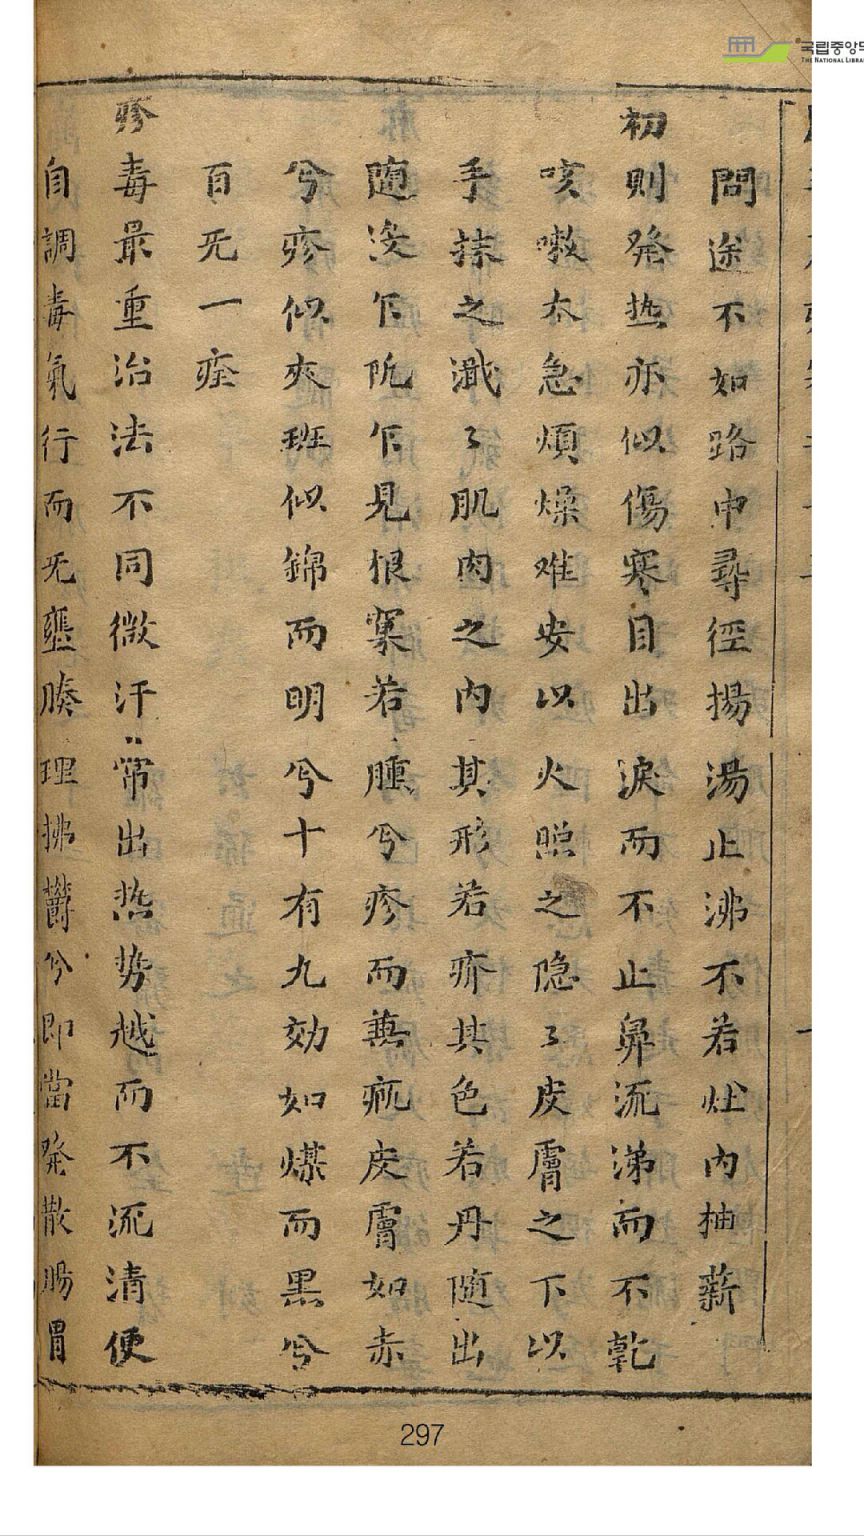 問途不如路中尋徑揚湯止沸不若灶内抽薪
初則発热亦似傷寒目出淚而不止鼻流涕而不乾
咳嗽太急煩燥难安以火照之隐〻皮膚之下以
手抹之溅〻肌肉之内其形若疥其色若丹随出
随没乍阮乍見根窠若腫兮疹而兼疪皮膚如赤
兮疹似夾班似錦而明兮十有九効如煤而黒兮
百无一痊
疹毒最重治法不同微汗常出热势越而不流清便
自調毒氣行而无壅腠理拂欝兮即當発散腸胃
297
국립중앙
THE NATIONAL LIBRA